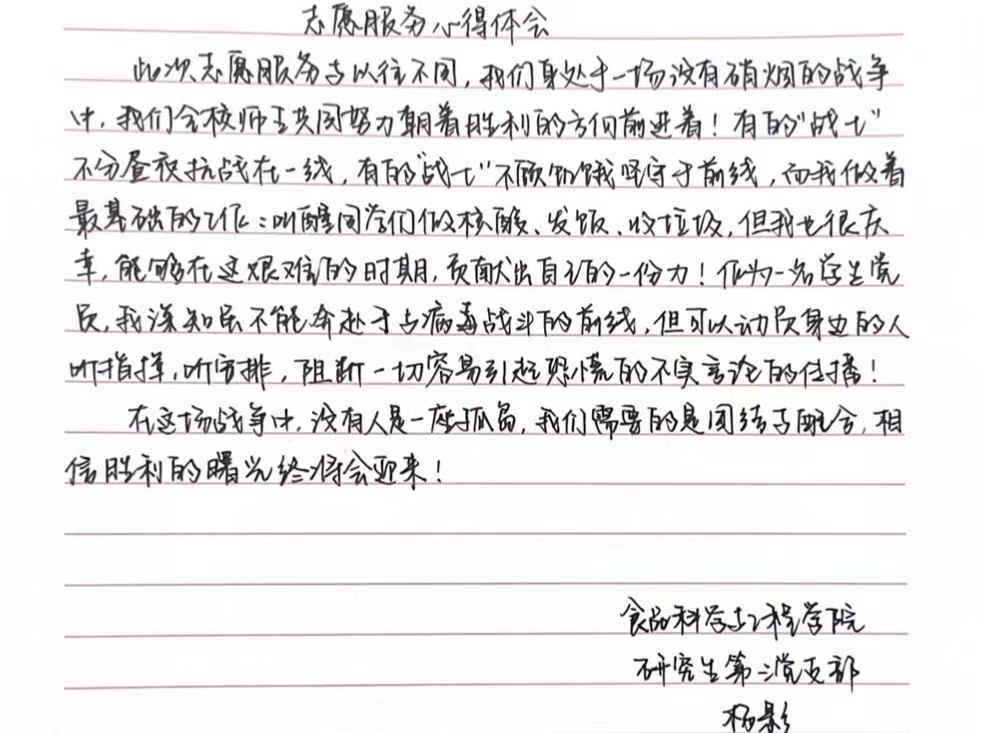 志愿服务心得体会
此次志愿服务与以往不同，我们身处于一场没有硝烟的战争
中，我们全校师生共同努力朝着胜利的方向前进着！有的“战士”
不分昼夜抗战在一线，有的“战士”不顾饥饿坚守于前线，而我做着
最基础的工作：叫醒同学们做核酸、发饭、收垃圾，但我也很庆
幸，能够在这艰难的时期，贡献出自己的一份力！作为一名学生党
员，我深知虽不能奔赴于与病毒战斗的前线，但可以动员身边的人
听指挥，听安排，阻断一切容易引起恐慌的不实言论的传播！
在这场战争中，没有人是一座孤岛，我们需要的是团结与配合，相
信胜利的曙光终将会迎来！
食品科学与工程学院
研究生第二党支部
杨影